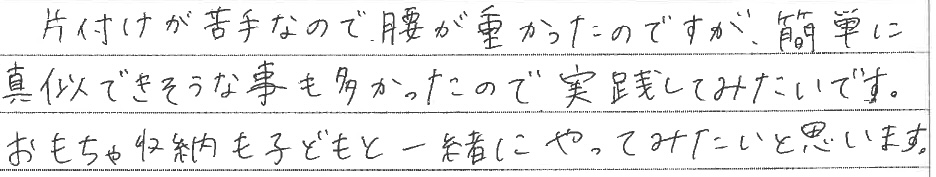 片付けが苦手なので、腰が重かったのですが、簡単に
真似できそうな事も多かったので実践してみたいです。
おもちゃ収納も子どもと一緒にやってみたいと思います。